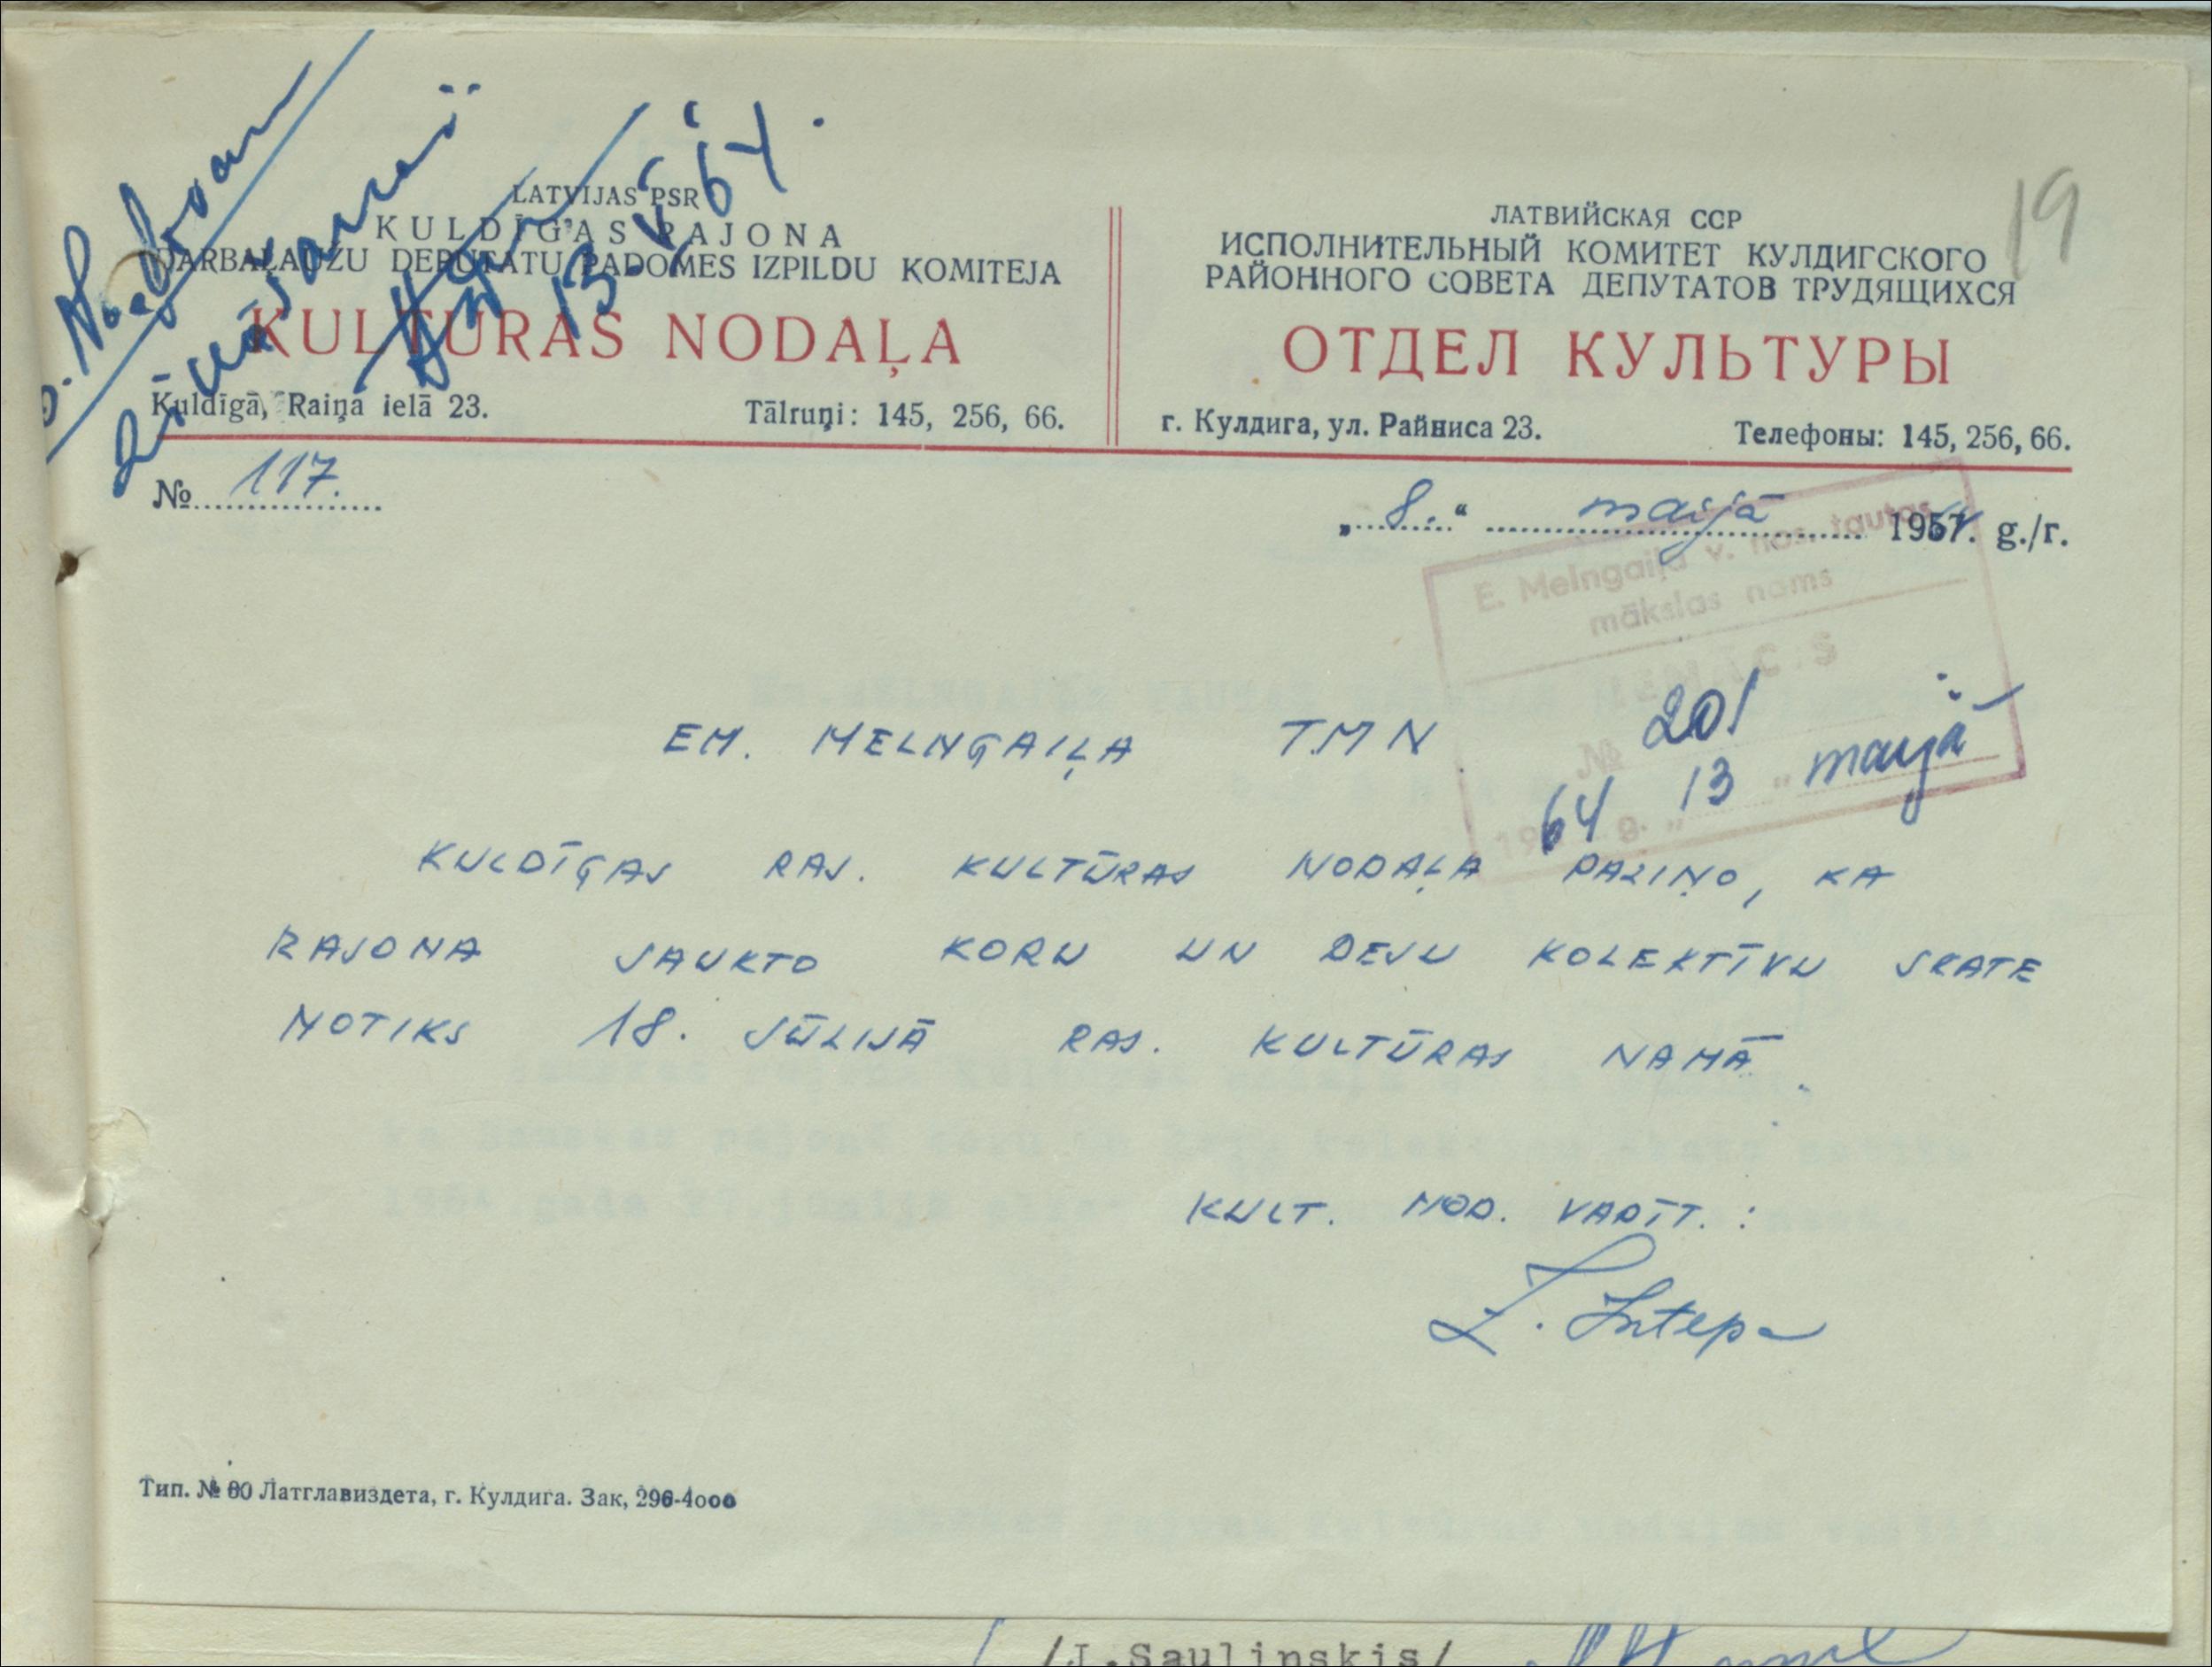 19
LATVIJAS PSR
KULDĪGAS RAJONA
DARBAĻAUŽU DEPUTATU PADOMES IZPILDU KOMITEJA
KULTURAS NODAĻA
Kuldīgā, Raiņa ielā 23. Tālruņi: 145, 256, 66.
ЛАТВИЙСКАЯ ССР
ИСПОЛНИТЕЛЬНЫЙ КОМИТЕТ КУЛДИГСКОГО
РАЙОННОГО СОВЕТА ДЕПУТАТОВ ТРУДЯЩИХСЯ
ОТДЕЛ КУЛЬТУРЫ
г. Кулдига, ул. Райниса 23. Телефоны: 145, 256, 66.
13. V 64.
№ 117.
„8.“ maijā 1964. g./г.
E. Melngaiļa v. nos. tautas
mākslas nams
№ 201
1964 g. „13„ maijā
EM. MELNGAIĻA TMN
KULDĪGAS RAJ. KULTŪRAS NODAĻA PAZIŅO, KA
RAJONA JAUKTO KORU UN DEJU KOLEKTĪVU SKATE
NOTIKS 18. JŪLIJĀ RAJ. KULTŪRAS NAMĀ.
KULT. NOD. VADĪT. :
Тип. № 80 Латглавиздета, г. Кулдига. Зак, 296-4000
/J.Saulinskis/